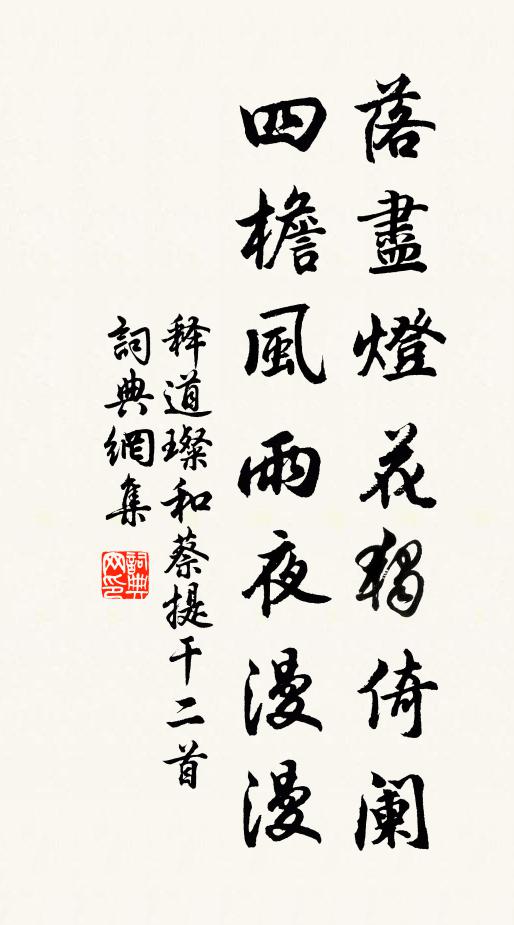 落盡燈花獨倚闌
四檐風雨夜漫漫
释道璨和蔡提干二首
詞典網集
詞典网印